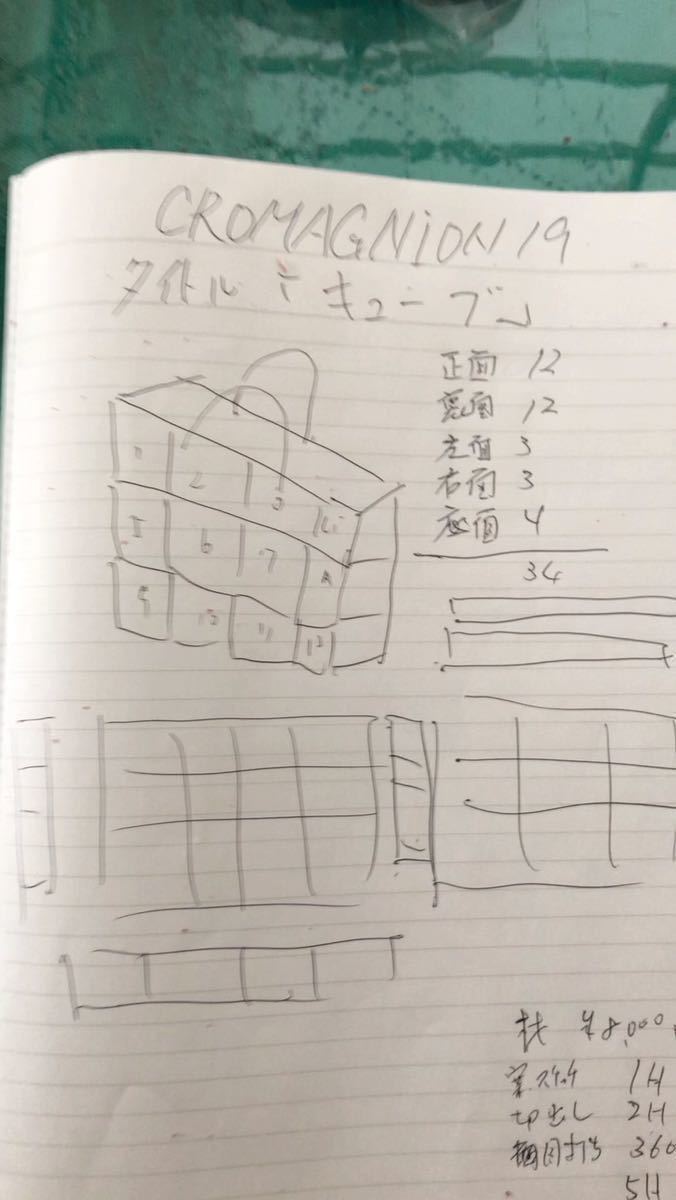 CROMAGNiON 19
タイトル「キューブ」
正面 12
裏面 12
左面 3
右面 3
底面 4
34
1 2 3
5 6 7
9 10 11 12
材 ¥8,000
案スケッチ 1H
切出し 2H
360
5H